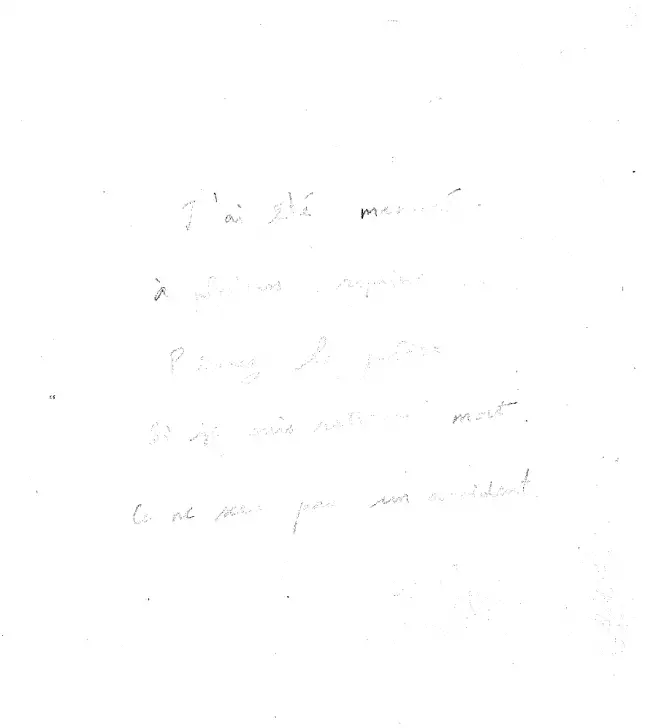 J'ai été menacé
à plusieurs reprises
Prévenez la police
Si je suis retrouvé mort.
Ce ne sera pas un accident.